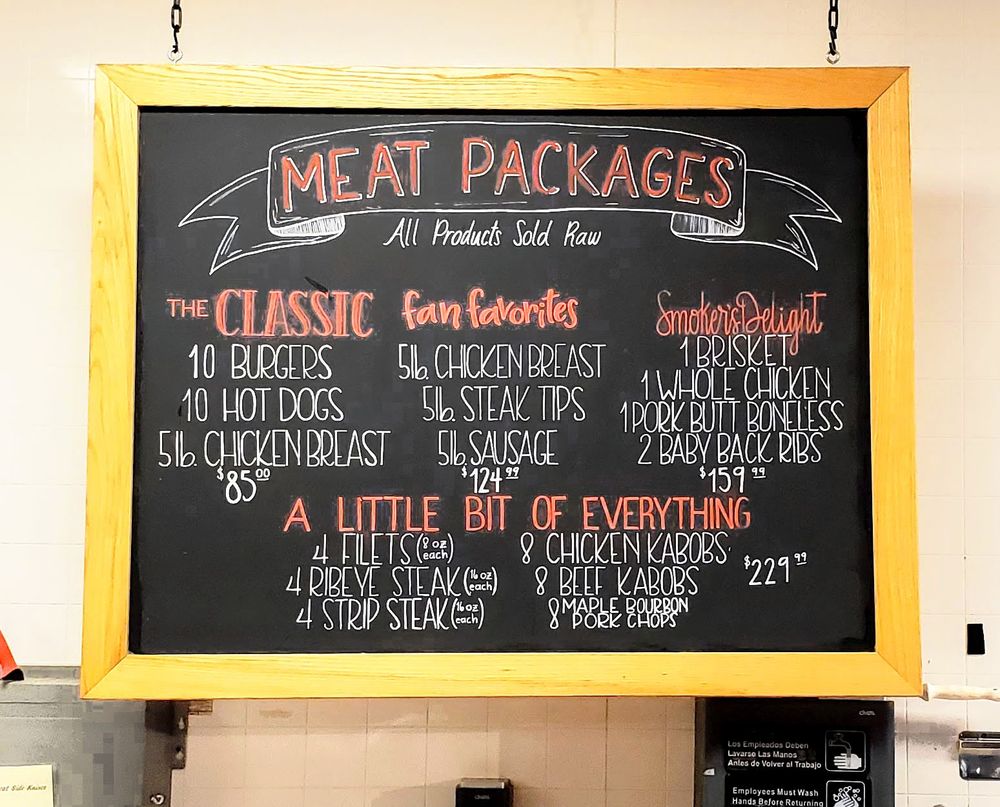 MEAT PACKAGES
All Products Sold Raw
THE CLASSIC
10 BURGERS
10 HOT DOGS
5lb. CHICKEN BREAST
$85.00
fan favorites
5lb. CHICKEN BREAST
5lb. STEAK TIPS
5lb. SAUSAGE
$124.99
Smoker's Delight
1 BRISKET
1 WHOLE CHICKEN
1 PORK BUTT BONELESS
2 BABY BACK RIBS
$159.99
A LITTLE BIT OF EVERYTHING
4 FILETS (8 oz each)
4 RIBEYE STEAK (16 oz each)
4 STRIP STEAK (16 oz each)
8 CHICKEN KABOBS
8 BEEF KABOBS
8 MAPLE BOURBON
PORK CHOPS
$229.99
Los Empleados Deben
Lavarse Las Manos
Antes de Volver al Trabajo
Employees Must Wash
Hands Before Returning